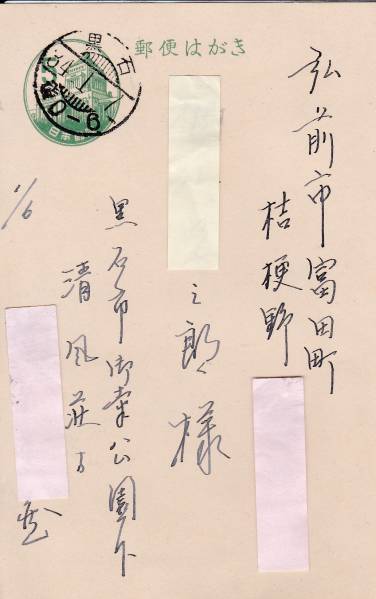 郵便はがき
黒石
弘前市富田町
桔梗野
之郎様
黒石市御幸公園下
清風荘
1/6